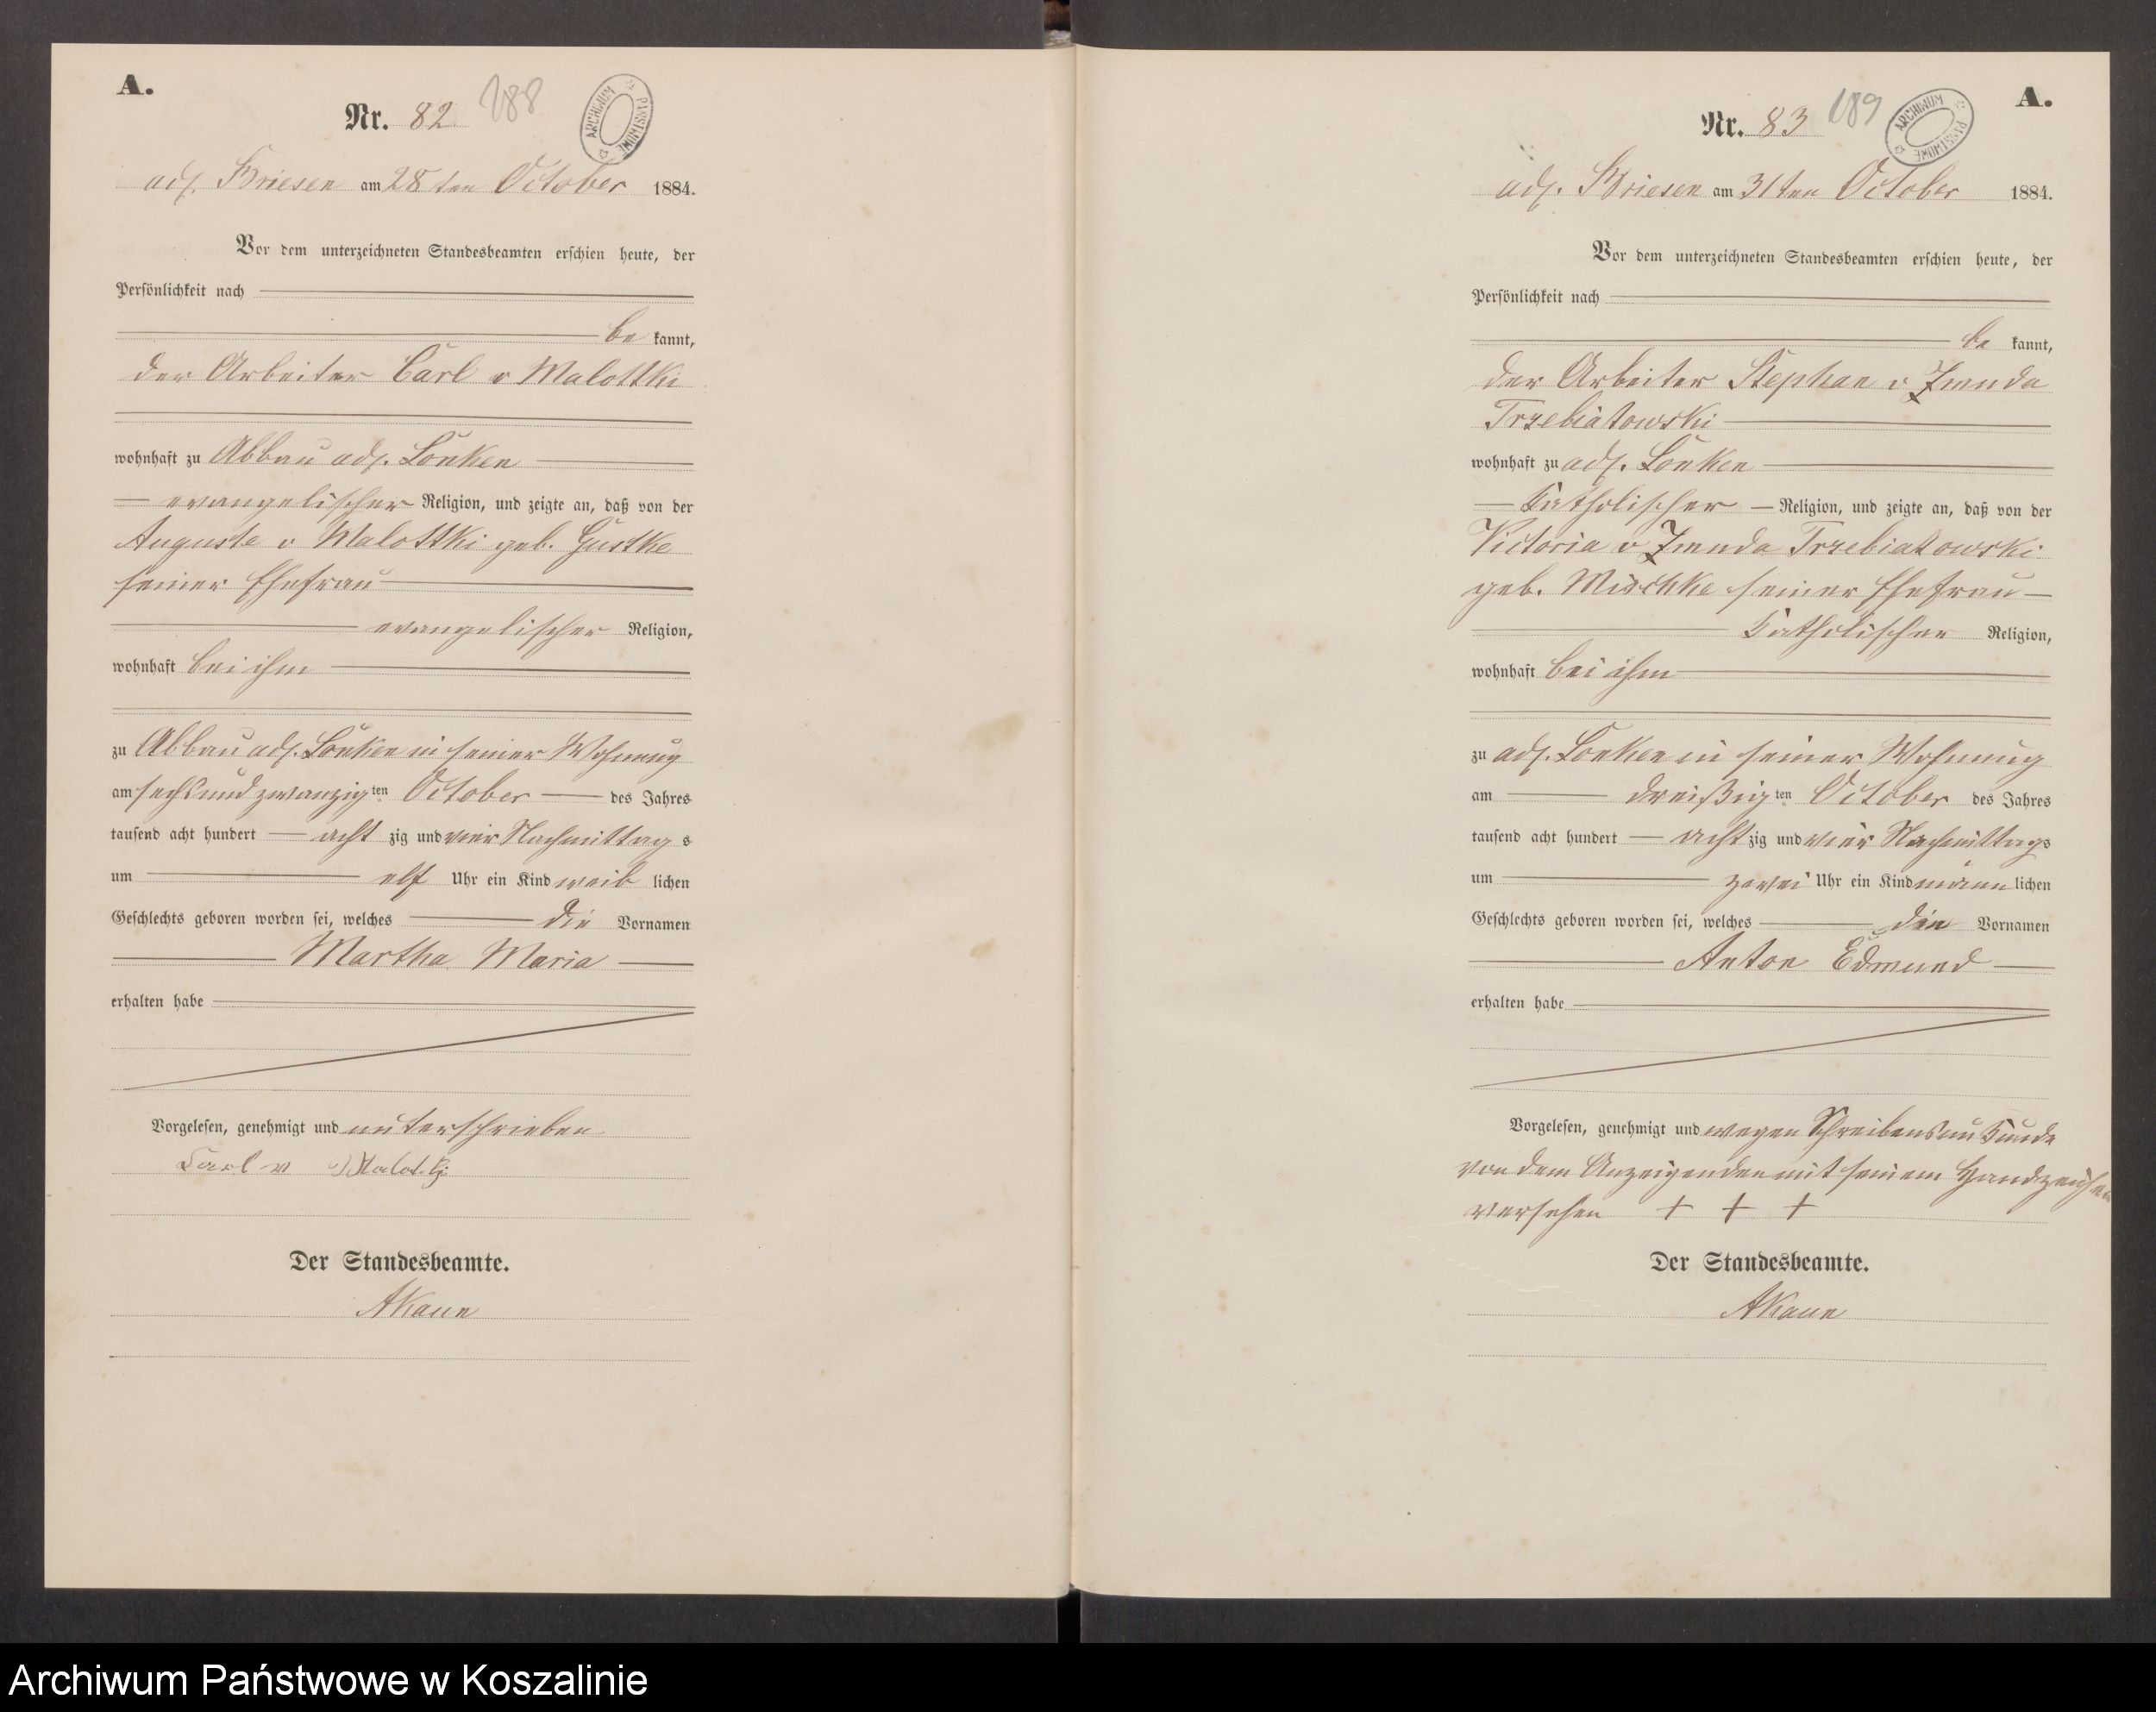 A.
Nr. 82
188
ARCHIWUM PAŃSTWOWE
adl. Briesen am 28ten October 1884.
Vor dem unterzeichneten Standesbeamten erschien heute, der
Persönlichkeit nach
be kannt,
der Arbeiter Carl v Malottki
wohnhaft zu Abbau adl. Lonken
evangelischer Religion, und zeigte an, daß von der
Auguste v Malottki geb. Gustke
seiner Ehefrau
evangelischer Religion,
wohnhaft bei ihm
zu Abbau adl. Lonken in seiner Wohnung
am sechsundzwanzig ten October des Jahres
tausend acht hundert acht zig und vier Nachmittag s
um elf Uhr ein Kind weib lichen
Geschlechts geboren worden sei, welches die Vornamen
Martha Maria
erhalten habe
Vorgelesen, genehmigt und unterschrieben
Carl v
Der Standesbeamte.
AKaun
A.
Nr. 83
189
ARCHIWUM PAŃSTWOWE
adl. Briesen am 31ten October 1884.
Vor dem unterzeichneten Standesbeamten erschien heute, der
Persönlichkeit nach
be kannt,
der Arbeiter Stephan v Zmuda
Trzebiatowski
wohnhaft zu adl. Lonken
katholischer Religion, und zeigte an, daß von der
Victoria v Zmuda Trzebiatowski
geb. Mischke seiner Ehefrau
katholischer Religion,
wohnhaft bei ihm
zu adl. Lonken in seiner Wohnung
am dreißig ten October des Jahres
tausend acht hundert acht zig und vier Nachmittags
um zwei Uhr ein Kind männ lichen
Geschlechts geboren worden sei, welches die Vornamen
Anton Edmund
erhalten habe
Vorgelesen, genehmigt und wegen Schreibensunkunde
von dem Anzeigenden mit seinem Handzeichen
versehen + + +
Der Standesbeamte.
AKaun
Archiwum Państwowe w Koszalinie